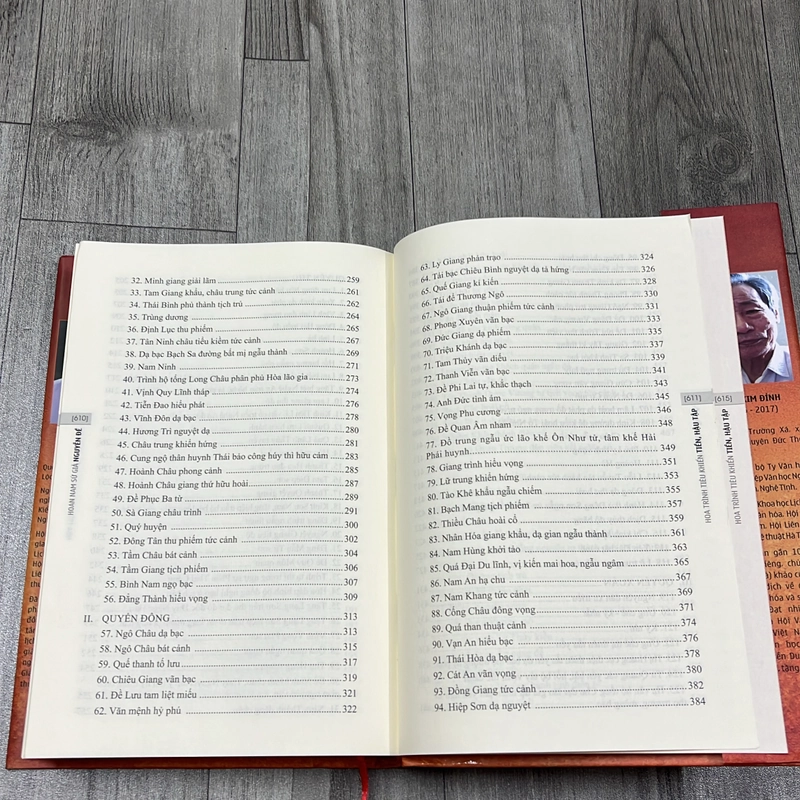 32. Minh giang giải lãm 259
33. Tam Giang khẩu, châu trung tức cảnh 261
34. Thái Bình phủ thành tịch trú 262
35. Trùng dương 264
36. Định Lục thu phiếm 265
37. Tân Ninh châu tiểu kiếm tức cảnh 267
38. Dạ bạc Bạch Sa đường bất mị ngẫu thành 269
39. Nam Ninh 271
40. Trình hộ tống Long Châu phân phủ Hòa lão gia 273
41. Vịnh Quy Lĩnh tháp 275
42. Tiễn Đao hiểu phát 276
43. Vĩnh Đôn dạ bạc 278
44. Hương Tri nguyệt dạ 280
45. Châu trung khiển hứng 281
46. Cung ngộ thân huynh Thái bảo công húy thì hữu cảm 283
47. Hoành Châu phong cảnh 285
48. Hoành Châu giang thứ hữu hoài 287
49. Đề Phục Ba từ 289
50. Sà Giang châu trình 291
51. Quý huyện 300
52. Đông Tân thu phiếm tức cảnh 302
53. Tầm Châu bát cảnh 304
54. Tầm Giang tịch phiếm 305
55. Bình Nam ngọ bạc 307
56. Đằng Thành hiểu vọng 309
II. QUYỂN ĐÔNG 313
57. Ngô Châu dạ bạc 313
58. Ngô Châu bát cảnh 315
59. Quế thanh tố lưu 317
60. Chiêu Giang vãn bạc 319
61. Đề Lưu tam liệt miếu 321
62. Văn mệnh hý phú 322
[610]
HOAN NAM SỨ GIẢ NGUYỄN ĐỀ
63. Ly Giang phản trạo 324
64. Tái bạc Chiêu Bình nguyệt dạ tả hứng 326
65. Quế Giang kí kiến 328
66. Tái đề Thương Ngô 330
67. Ngô Giang thuận phiếm tức cảnh 331
68. Phong Xuyên vãn bạc 333
69. Đức Giang dạ phiếm 335
70. Triệu Khánh dạ bạc 337
71. Tam Thủy vãn diểu 339
72. Thanh Viễn vãn bạc 341
73. Đề Phi Lai tự, khắc thạch 343
74. Anh Đức tình ám 345
75. Vọng Phu cương 346
76. Đề Quan Âm nham 348
77. Đồ trung ngẫu ức lão khế Ôn Như tử, tâm khế Hải
Phái huynh 349
78. Giang trình hiểu vọng 351
79. Lữ trung khiển hứng 353
80. Tào Khê khẩu ngẫu chiếm 355
81. Bạch Mang tịch phiếm 357
82. Thiều Châu hoài cổ 359
83. Nhân Hóa giang khẩu, dạ gian ngẫu thành 361
84. Nam Hùng khởi táo 363
85. Quá Đại Du lĩnh, vị kiến mai hoa, ngẫu ngâm 365
86. Nam An hạ chu 367
87. Nam Khang tức cảnh 369
88. Cống Châu đông vọng 371
89. Quá than thuật cảnh 374
90. Vạn An hiểu bạc 376
91. Thái Hòa dạ bạc 378
92. Cát An vãn vọng 380
93. Đồng Giang tức cảnh 382
94. Hiệp Sơn dạ nguyệt 384
[611]
HOA TRÌNH TIÊU KHIỂN TIỀN, HẬU TẬP
[615]
HOA TRÌNH TIÊU KHIỂN TIỀN, HẬU TẬP
KIM ĐỈNH
- 2017)